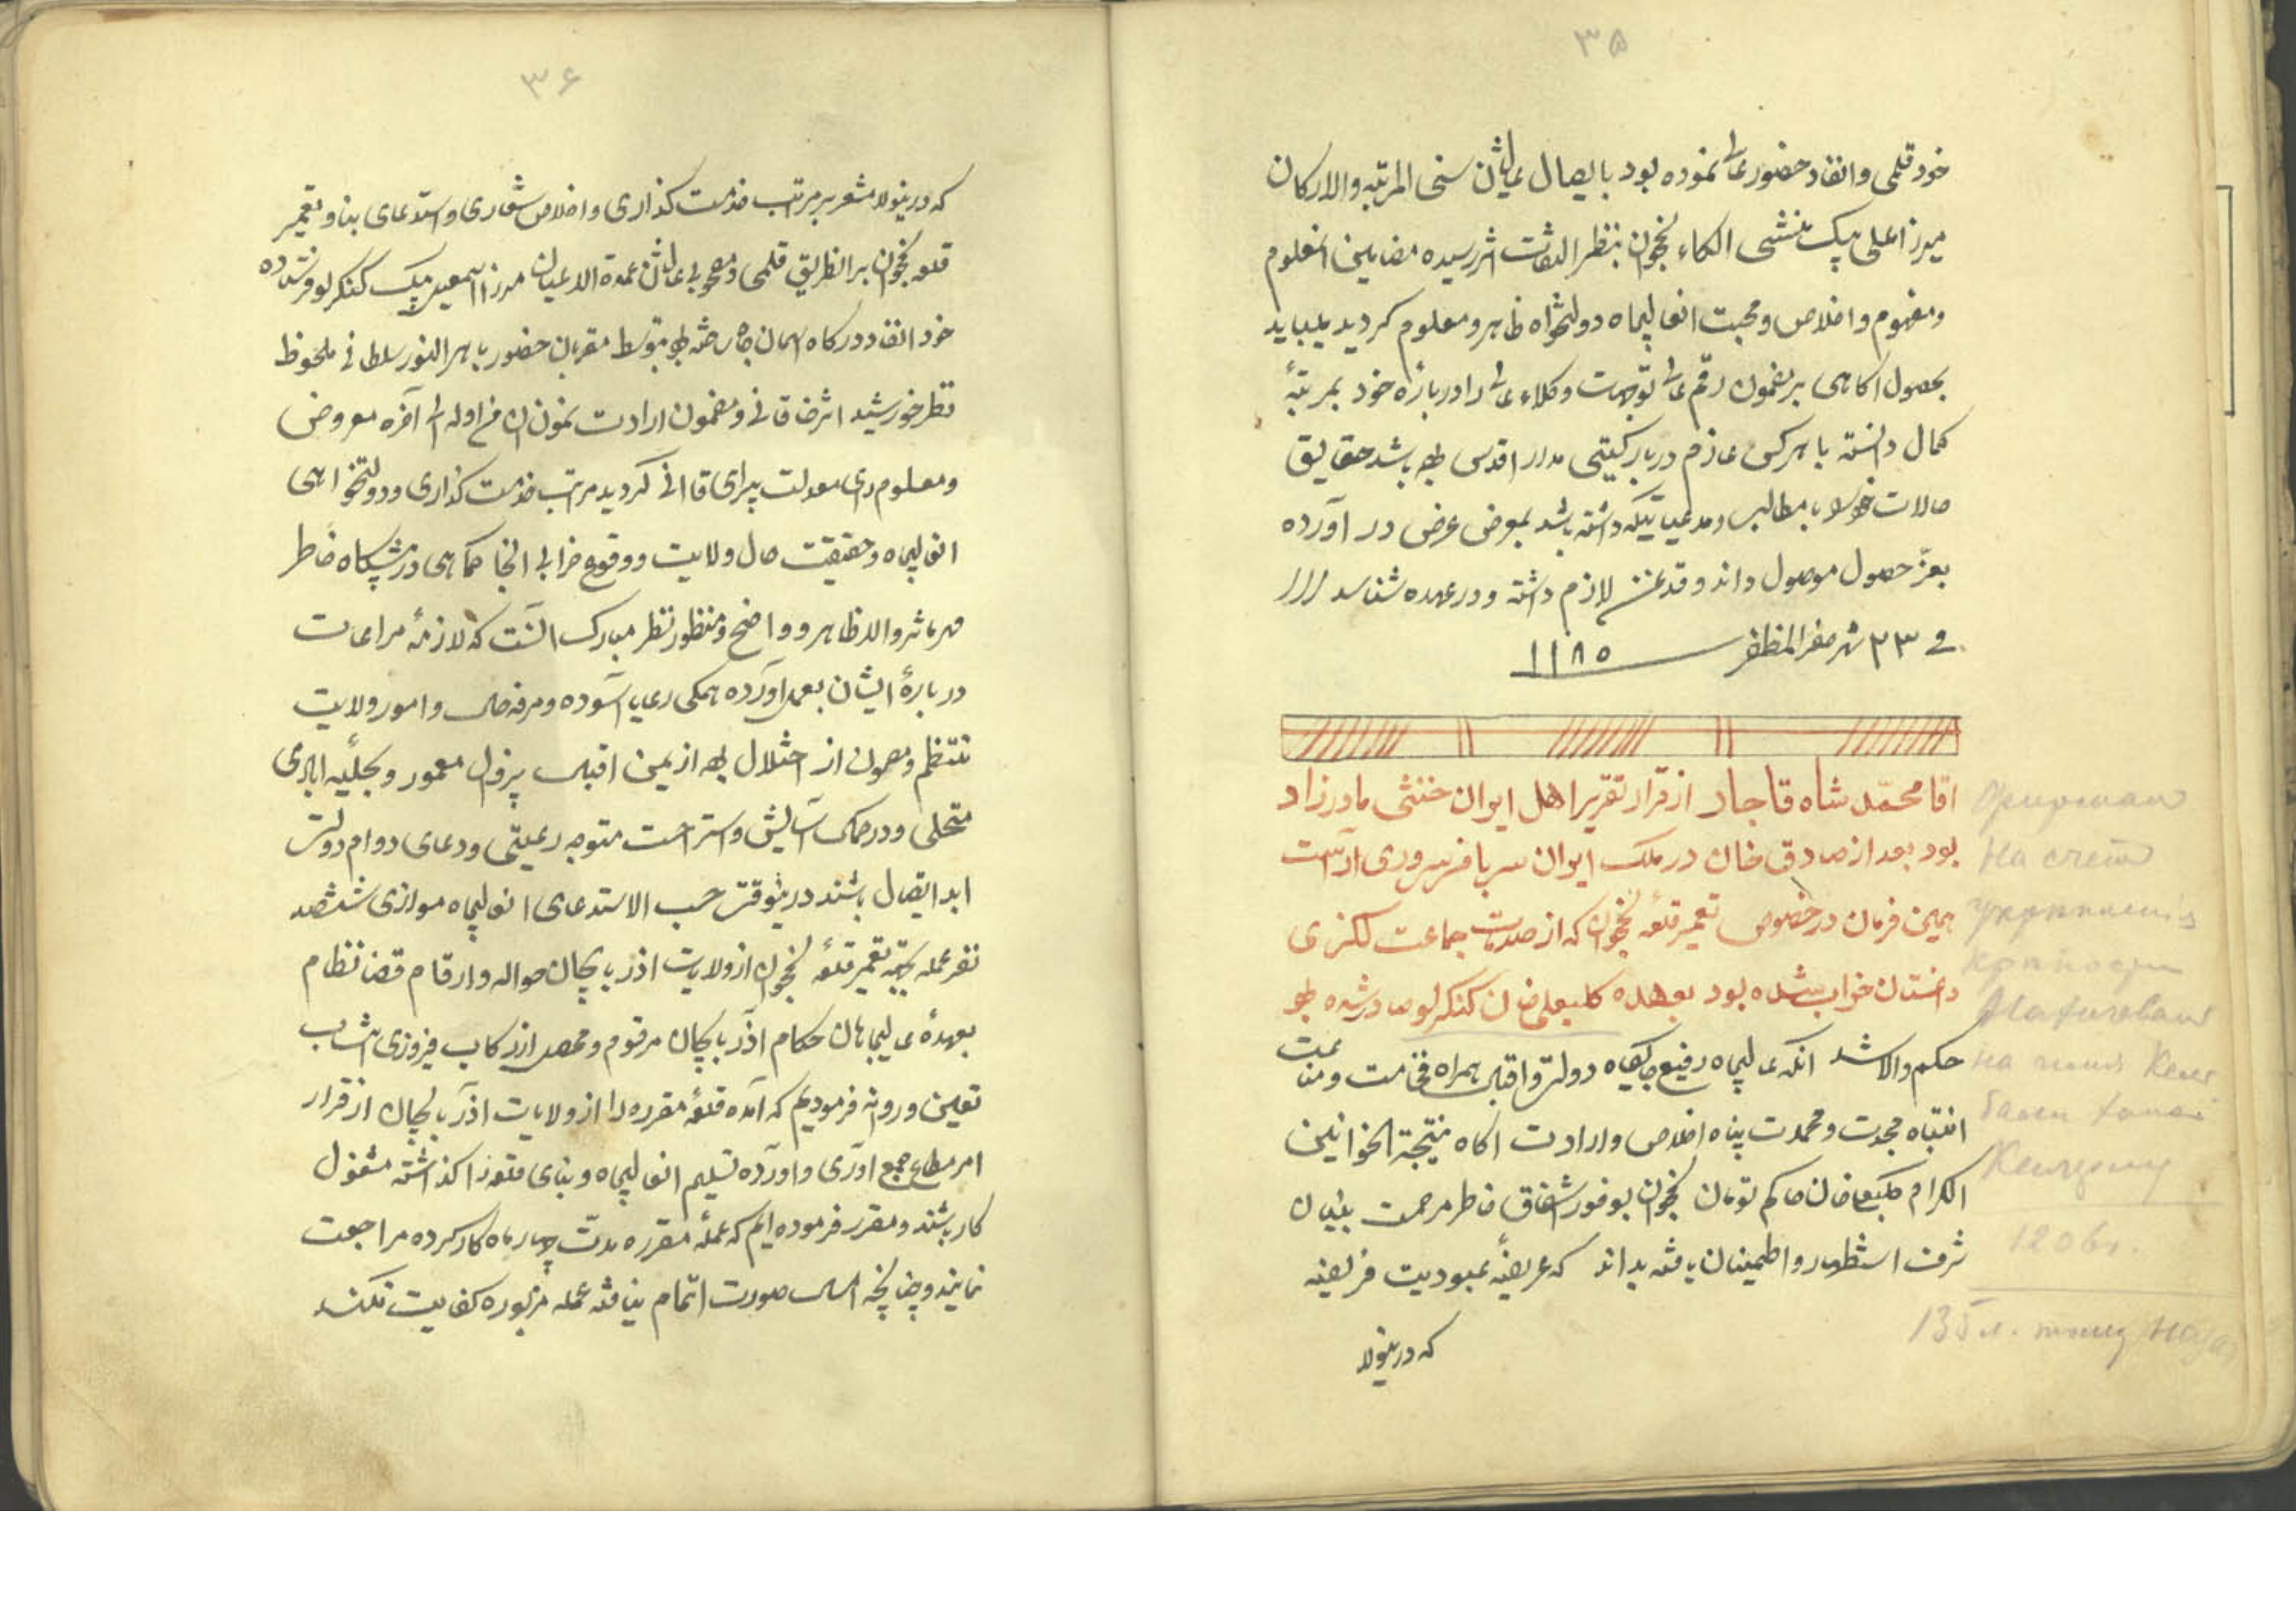 ۳۵
خود قلمی و انفاد حضور عالی نموده بود با ایصال عالیشان سنی المرتبه والارکان
میرزا علی بیک منشی الکاء نخجوان بنظر التفات اثر رسیده مضامین انمعلوم
ومفهوم و اخلاص و محبت انعالیجاه دولتخواه ظاهر و معلوم کردید میباید
بحصول اکاهی بر مضمون رقم عالی توجهات وکلاء عالی را درباره خود بمرتبهٔ
کمال دانسته با هرکس عازم دربار کیتی مدار اقدس باشد حقایق
حالات خود با مطالب و مدعیاتیکه داشته باشد بمعرض عرض در آورده
بعزّ حصول موصول داند و قدغن لازم داشته و در عهده شناسد
فی ۲۳ شهر صفر المظفر ۱۱۸۵
اقا محمّد شاه قاجار از قرار تقریر اهل ایوان خنثی مادرزاد
بود بعد از صادق خان در ملک ایوان سر بافسر سروری آراست
همین فرمان در خصوص تعمیر قلعه نخجوان که از صدمات جماعت لکزی
داغستان خراب شده بود بعهده کلبعلی خان کنکرلو صادر شده
حکم والا شد انکه عالیجاه رفیع جایکاه دولت و اقبال همراه فخامت و مناعت
انتباه مجدت و محمدت پناه اخلاص و ارادت اکاه نتیجة الخوانین
الکرام کلبعلیخان حاکم تومان نخجوان بوفور اشفاق خاطر مرحمت بنیان
شرف استظهار و اطمینان یافته بداند که عریضهٔ عبودیت فریضه
که درینولا
Ферман
на счет
укрепления
крепости
Нахичевани
на имя Келб
бали хана
Кенгерлу
1206 г.
۳۶
که درینولا مشعر بر مراتب خدمت کذاری و اخلاص شعاری و استدعای بنا و تعمیر
قلعه نخجوان براانطریق قلمی و مصحوب عالیشان عمدة الاعیان میرزا اسمعیل بیک کنکرلو فرستاده
خود انفاد درکاه اسمان جاه ساخته بتوسط مقربان حضور باهر النور سلطانی ملحوظ
نظر خورشید اثر خاقانی و مضمون ارادت نمون ان من اوله الی آخره معروض
و معلوم رای معدلت پیرای قاانی کردید مراتب خدمت کذاری و دولتخواهی
انعالیجاه و حقیقت حال ولایت و وقوع خرابی انجا کماهی در پیشکاه خاطر
مهر ماثر والا ظاهر و واضح و منظور نظر مبارک انست که لازمهٔ مراعات
دربارهٔ ایشان بعمل اورده همکی رعایا آسوده و مرفه حال و امور ولایت
منتظم و مصون از اختلال از یمن اقبال بیزوال معمور و بحلّیه ابادی
متحلی و در مهاد آسایش و استراحت متوجه رعیتی و دعای دوام دولت
ابد اتصال باشند درینوقت حسب الاستدعای انعالیجاه موازی ششصد
نفر عمله بجهة تعمیر قلعهٔ نخجوان از ولایات اذربایجان حواله و ارقام قضا نظام
بعهدهٔ عالیجاهان حکام اذربایجان مرقوم و محصل از رکاب فیروزی انتساب
تعیین و روانه فرمودیم که آمده قلعهٔ مقرره را از ولایات اذربایجان از قرار
امر مطاع جمع اوری و اورده تسلیم انعالیجاه و بنای قلعه را کذاشته مشغول
کار باشند و مقرر فرموده ایم که عملهٔ مقرره مدت چهار ماه کار کرده مراجعت
نمایند و چنانچه اساس صورت اتمام نیافته عمله مزبوره کفایت نکند